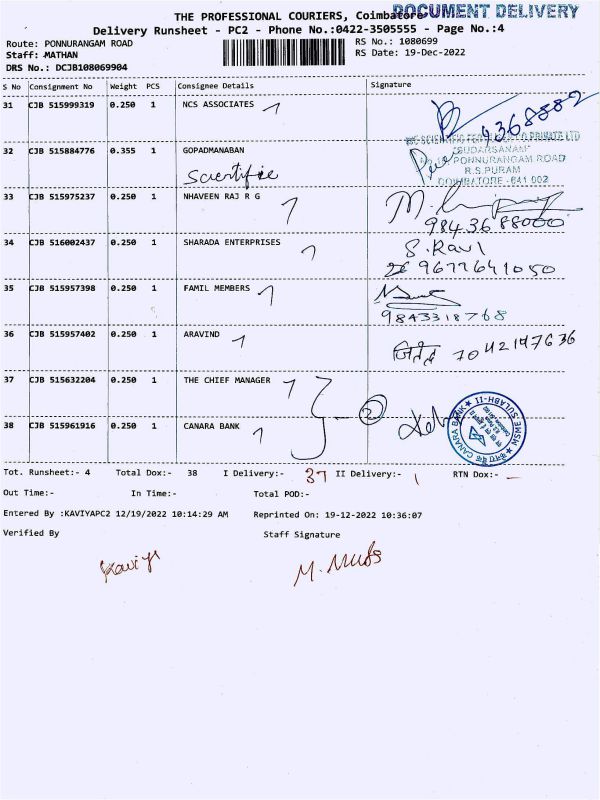 THE PROFESSIONAL COURIERS, Coimbatore
DOCUMENT DELIVERY
Delivery Runsheet - PC2 - Phone No.:0422-3505555 - Page No.:4
Route: PONNURANGAM ROAD
RS No.: 1080699
Staff: MATHAN
RS Date: 19-Dec-2022
DRS No.: DCJB108069904
S No Consignment No Weight PCS Consignee Details Signature
31 CJB 515999319 0.250 1 NCS ASSOCIATES
32 CJB 515884776 0.355 1 GOPADMANABAN
Scientific
"SUDARSANAM"
PONNURANGAM ROAD
R.S.PURAM
COIMBATORE-641 002
33 CJB 515975237 0.250 1 NHAVEEN RAJ R G
9843688000
34 CJB 516002437 0.250 1 SHARADA ENTERPRISES
S. Ravi
9677641050
35 CJB 515957398 0.250 1 FAMIL MEMBERS
9843318768
36 CJB 515957402 0.250 1 ARAVIND
7042147636
37 CJB 515632204 0.250 1 THE CHIEF MANAGER
2
38 CJB 515961916 0.250 1 CANARA BANK
CANARA BANK ★ MSME SULABH-II ★
Tot. Runsheet:- 4 Total Dox:- 38 I Delivery:- 37 II Delivery:- 1 RTN Dox:- -
Out Time:- In Time:- Total POD:-
Entered By :KAVIYAPC2 12/19/2022 10:14:29 AM Reprinted On: 19-12-2022 10:36:07
Verified By Staff Signature
Kaviya